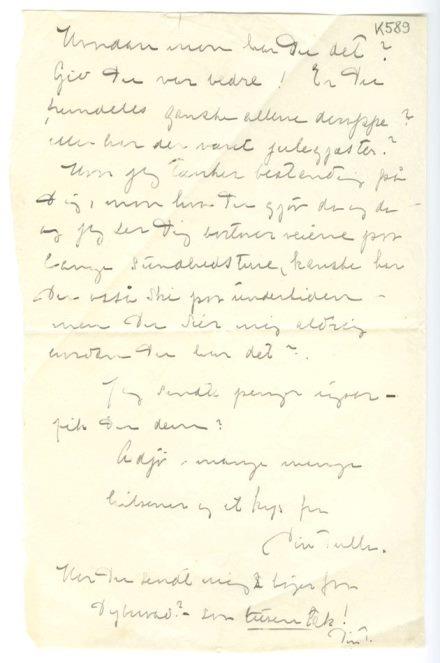 K589
Hvordan mon har Du det?
Giv Du var bedre! Er Du
fremdeles ganske allene deroppe?
eller har der været julegjæster?
Men jeg tænker bestandig på
Dig, mon hva Du gjør da og da -
og jeg ser Dig bortover veiene paa
lange Sundhedsture, kanske har
Du også Ski paa undertiden -
men Du sier mig aldrig
hvordan Du har det?
Jeg sendte penge igaar -
fik Du dem?
Adjø - mange mange
hilsener og et kys fra
Din Tulla.
Har Du sendt mig 2 bøger fra
Dybwad? - saa tusen tak!
Din T.